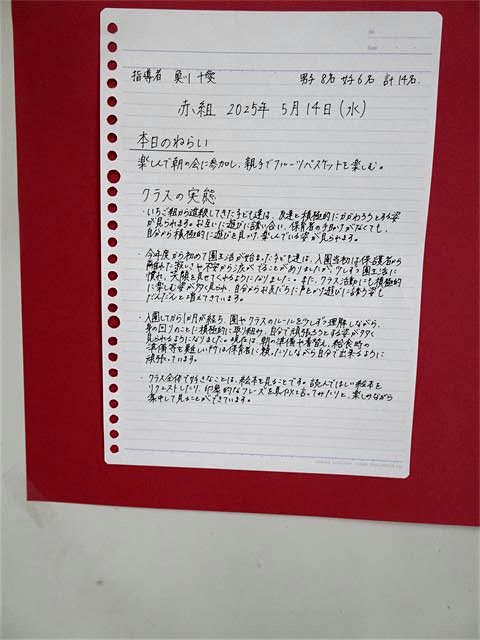 No.
Date
指導者 奥川 千愛 男子 8名 女子 6名 計 14名
赤組 2025年 5月14日(水)
本日のねらい
楽しんで朝の会に参加し、親子でフルーツバスケットを楽しむ。
クラスの実態
・いちご組から進級してきた子ども達は、友達と積極的にかかわろうとする姿
が見られます。お互いに遊びに誘い合い、保育者の手助けがなくても、
自分から積極的に遊びを見つけ、楽しんでいる姿が見られます。
・今年度から初めて園生活が始まった子ども達は、入園当初は保護者から
離れた寂しさや不安から泣がでることがありましたが、少しずつ園生活に
慣れ、笑顔を見せてくれるようになりました。また、クラス活動にも積極的
に楽しむ姿が多く見られ、自分からお友だちに声をかけ遊びに誘う姿も
だんだんと増えてきています。
・入園してから1か月が経ち、園やクラスのルールを少しずつ理解しながら、
身の回りのことに積極的に取り組み、自分で頑張ろうとする姿が多く
見られるようになりました。現在は、朝の準備や着替え、給食時の
準備等を難しい所は保育者に頼ったりしながら自分で出来るように
頑張っています。
・クラス全体で好きなことは、絵本を見ることです。読んでほしい絵本を
リクエストしたり、印象的なフレーズを真似て言ってみたりと、楽しみながら
集中して見ることができています。